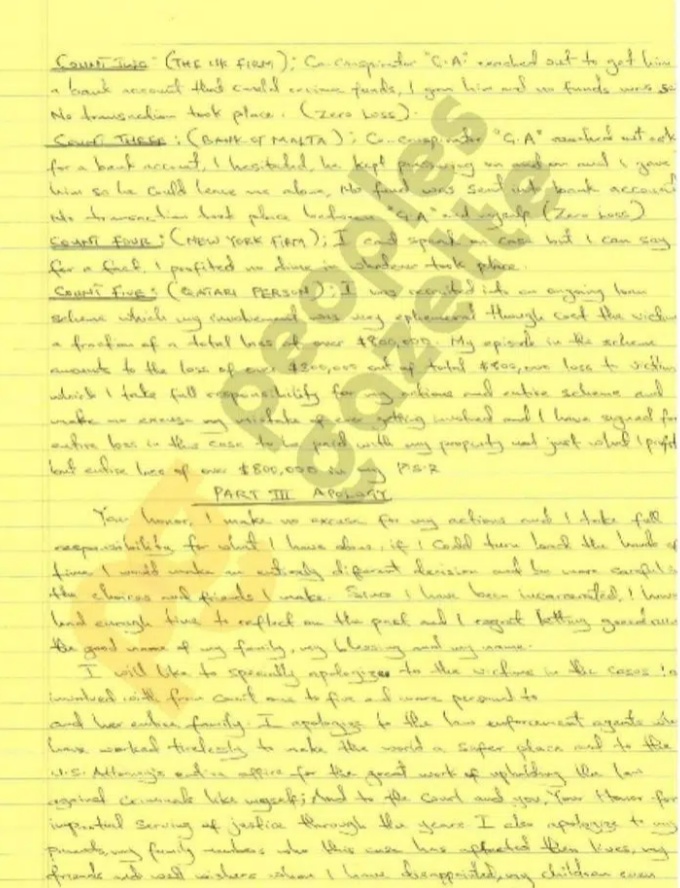 COUNT TWO: (THE UK FIRM); Co-conspirator "G.A" reached out to get him
a bank account that could receive funds, I gave him and no funds was se
No transaction took place. (Zero Loss).
COUNT THREE: (BANK OF MALTA); Co-conspirator "G.A" reached out ask
for a bank account, I hesitated, he kept pressuring on and on and I gave
him so he could leave me alone, No fund was sent into bank account
No transaction took place between "G.A" and myself (Zero Loss)
COUNT FOUR: (NEW YORK FIRM); I can't speak on case but I can say
for a fact, I profited no dime in whatever took place.
COUNT FIVE: (QATARI PERSON); I was recruited into an ongoing loan
scheme which my involvement was very ephemeral though cost the victim
a fraction of a total loss of over $800,000. My episode in the scheme
amounts to the loss of over $ out of total $800,000 loss to victim
which I take full responsibility for my actions and entire scheme and
make no excuse my mistake of ever getting involved and I have signed for
entire loss in this case to be paid with my property not just what I profit
but entire loss of over $800,000 in my P.S.R
PART III APOLOGY
Your honor, I make no excuse for my actions and I take full
responsibility for what I have done, if I could turn back the hands of
time I would make an entirely different decision and be more careful
the choices and friends I make. Since I have been incarcerated, I have
had enough time to reflect on the past and I regret letting greed
the good name of my family, my blessing and my name.
I will like to specially apologize to the victims in the cases I a
involved with from count one to five and more personal to
and her entire family. I apologize to the law enforcement agents who
have worked tirelessly to make the world a safer place and to the
U.S. Attorney's entire office for the great work of upholding the law
against criminals like myself; And to the Court and you, Your Honor for
impartial serving of justice through the years. I also apologize to my
parents, my family members who this case has affected their lives, my
friends and well wishers whom I have disappointed, my children even
peoples
gazette